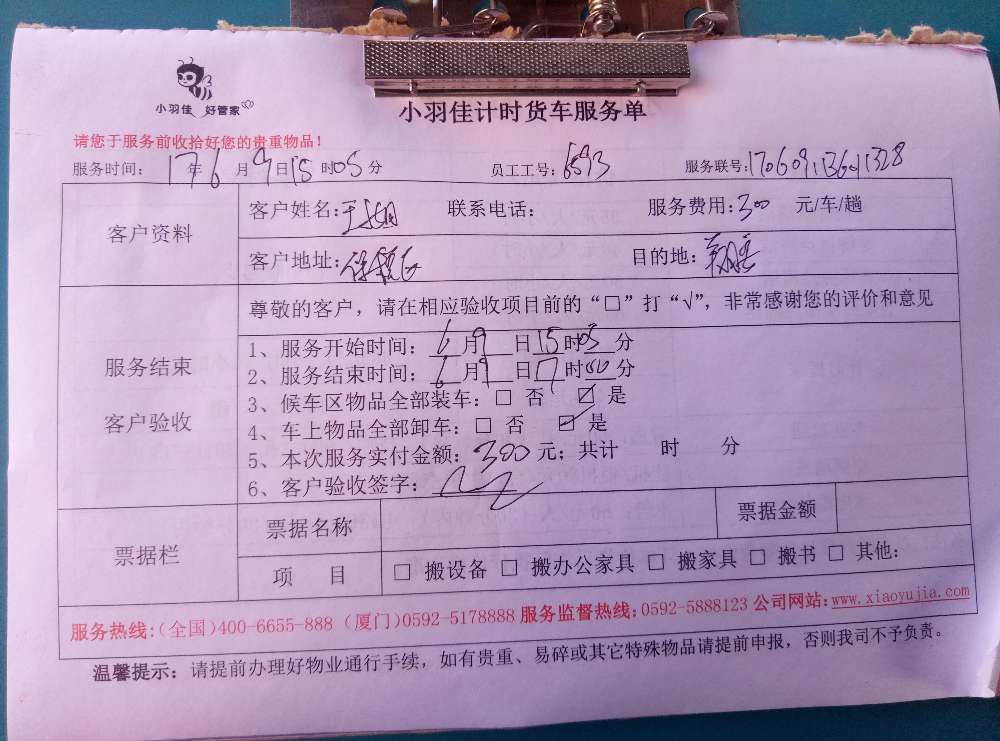 小羽佳 好管家
小羽佳计时货车服务单
请您于服务前收拾好您的贵重物品！
服务时间：17年6月9日15时05分 员工工号：6593 服务联号：17060913601328
客户资料
客户姓名：王 联系电话： 服务费用：300 元/车/趟
客户地址： 目的地：
服务结束
客户验收
尊敬的客户，请在相应验收项目前的“□”打“√”，非常感谢您的评价和意见
1、服务开始时间：6月9日15时05分
2、服务结束时间：6月9日17时00分
3、候车区物品全部装车：□ 否 ☑ 是
4、车上物品全部卸车：□ 否 ☑ 是
5、本次服务实付金额：300元；共计 时 分
6、客户验收签字：
票据栏
票据名称 票据金额
项 目 □ 搬设备 □ 搬办公家具 □ 搬家具 □ 搬书 □ 其他：
服务热线：（全国）400-6655-888（厦门）0592-5178888 服务监督热线：0592-5888123 公司网站：www.xiaoyujia.com
温馨提示：请提前办理好物业通行手续，如有贵重、易碎或其它特殊物品请提前申报，否则我司不予负责。